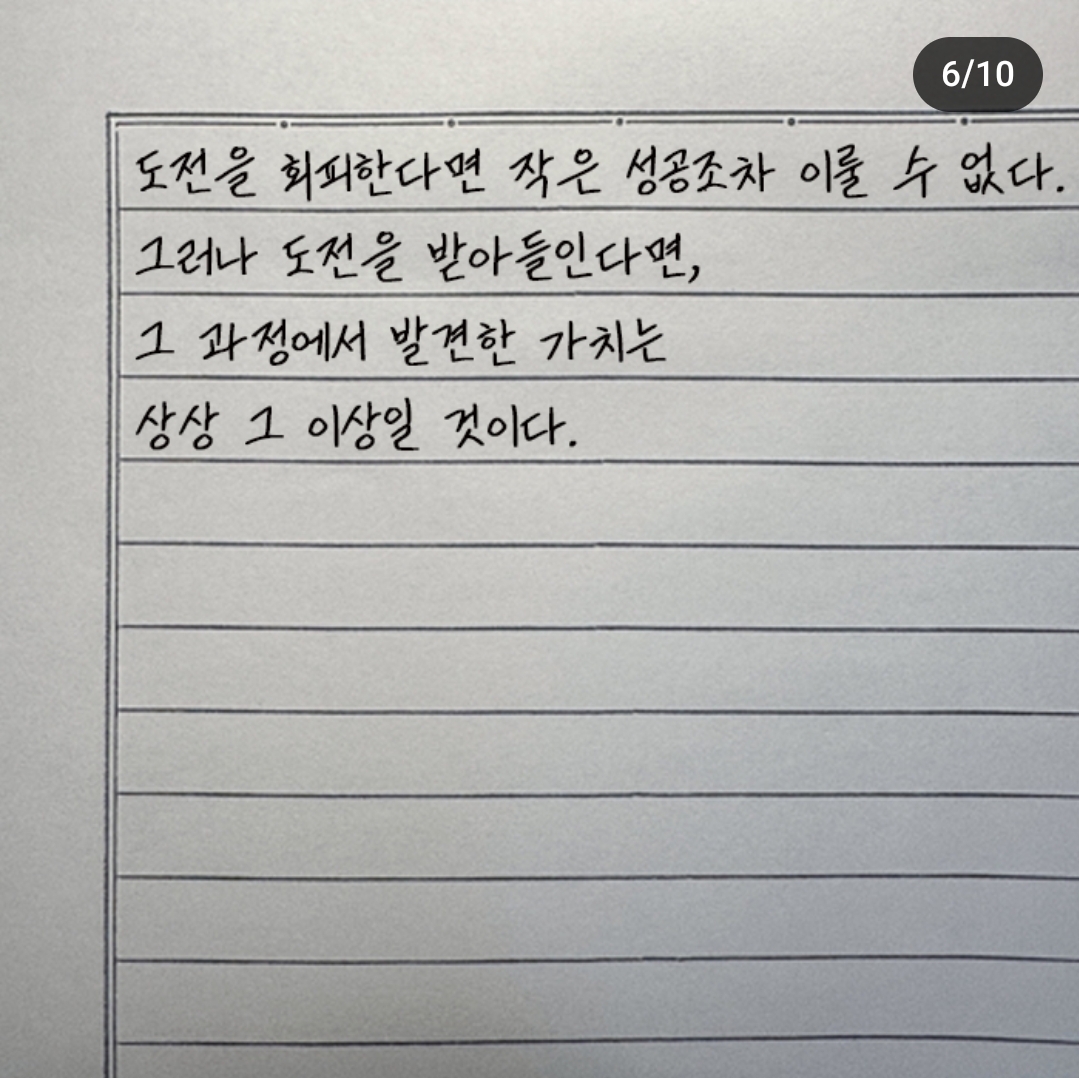 6/10
도전을 회피한다면 작은 성공조차 이룰 수 없다.
그러나 도전을 받아들인다면,
그 과정에서 발견한 가치는
상상 그 이상일 것이다.